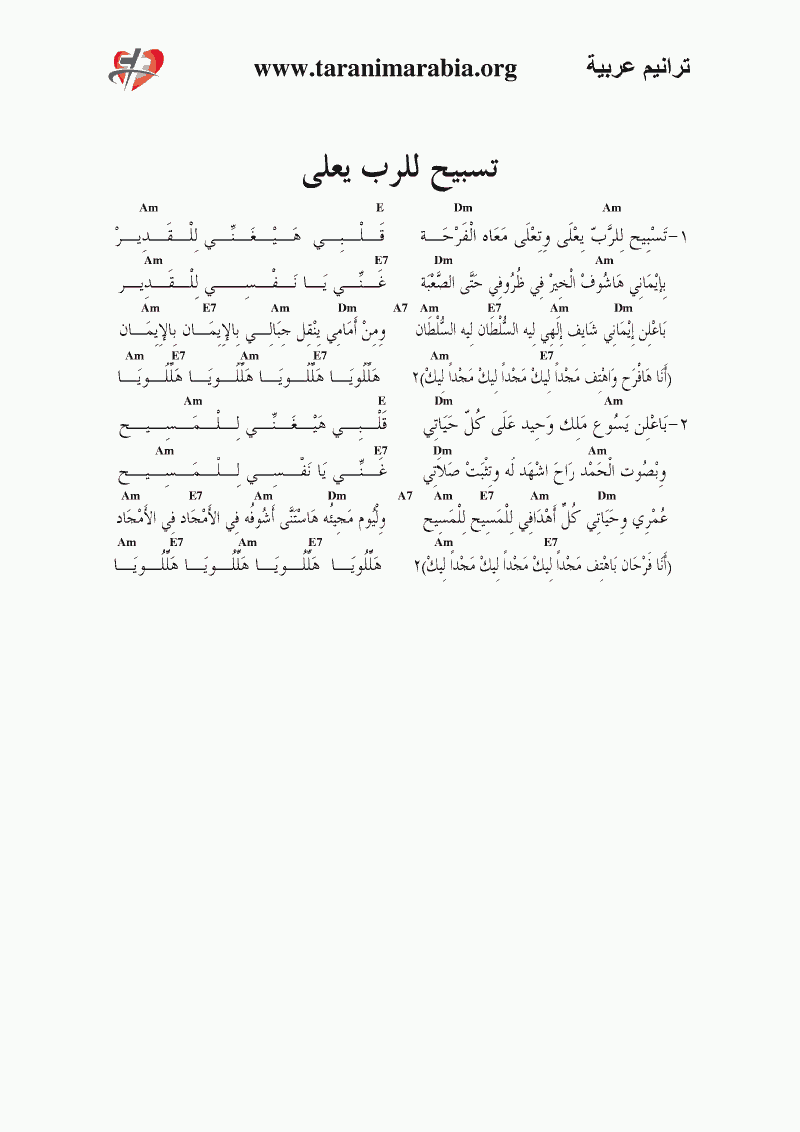 ترانيم عربية www.taranimarabia.org
تسبيح للرب يعلى
Am Dm E Am
١-تَسْبِيح لِلرَّبّ يِعْلَى وِتِعْلَى مَعَاه الْفَرْحَـــة قَـــلْـــبِـــي هَـــيْـــغَـــنِّـــي لِلْـــقَـــدِيـــرْ
Am Dm E7 Am
بِإِيْمَانِي هَاشُوفْ الْخِيْر فِي ظُرُوفِي حَتَّى الصَّعْبَة غَـــنِّـــي يَـــا نَـــفْـــسِـــي لِلْـــقَـــدِيـــر
Dm Am E7 Am A7 Dm Am E7 Am
بَاعْلِن إِيْمَانِي شَايِف إِلَهِي لِيه السُّلْطَان لِيه السُّلْطَان وِمِنْ أَمَامِي يِنْقِل جِبَالِـــي بِالإِيِمَـــان بِالإِيِمَـــان
E7 Am E7 Am E7 Am
(أَنَا هَافْرَح وَاهْتِف مَجْداً لِيكْ مَجْداً لِيكْ مَجْداً لِيكْ)٢ هَلِّلُويَـــا هَلِّلُـــويَـــا هَلِّلُـــويَـــا هَلِّلُـــويَـــا
Am Dm E Am
٢-بَاعْلِن يَسُوع مَلِك وَحِيد عَلَى كُلّ حَيَاتِي قَلْـــبِـــي هَيْـــغَـــنِّـــي لِـــلْـــمَـــسِـــيـــح
Am Dm E7 Am
وِبْصُوت الْحَمْد رَاحَ اشْهَد لَه وتِثْبَتْ صَلاَتِي غَـــنِّـــي يَا نَفْـــسِـــي لِـــلْـــمَـــسِـــيـــح
Dm Am E7 Am A7 Dm Am E7 Am
عُمْرِي وِحَيَاتِي كُلِّ أَهْدَافِي لِلْمَسِيح لِلْمَسِيح وِلْيُوم مَجِيئُه هَاسْتَنَّى أَشُوفُه فِي الأَمْجَاد فِي الأَمْجَاد
E7 Am E7 Am E7 Am
(أَنَا فَرْحَان بَاهْتِف مَجْداً لِيكْ مَجْداً لِيكْ مَجْداً لِيكْ)٢ هَلِّلُويَـــا هَلِّلُـــويَـــا هَلِّلُـــويَـــا هَلِّلُـــويَـــا